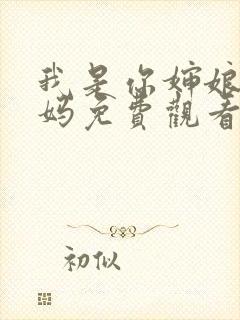 我是你婶娘
妈免費觀看
初似